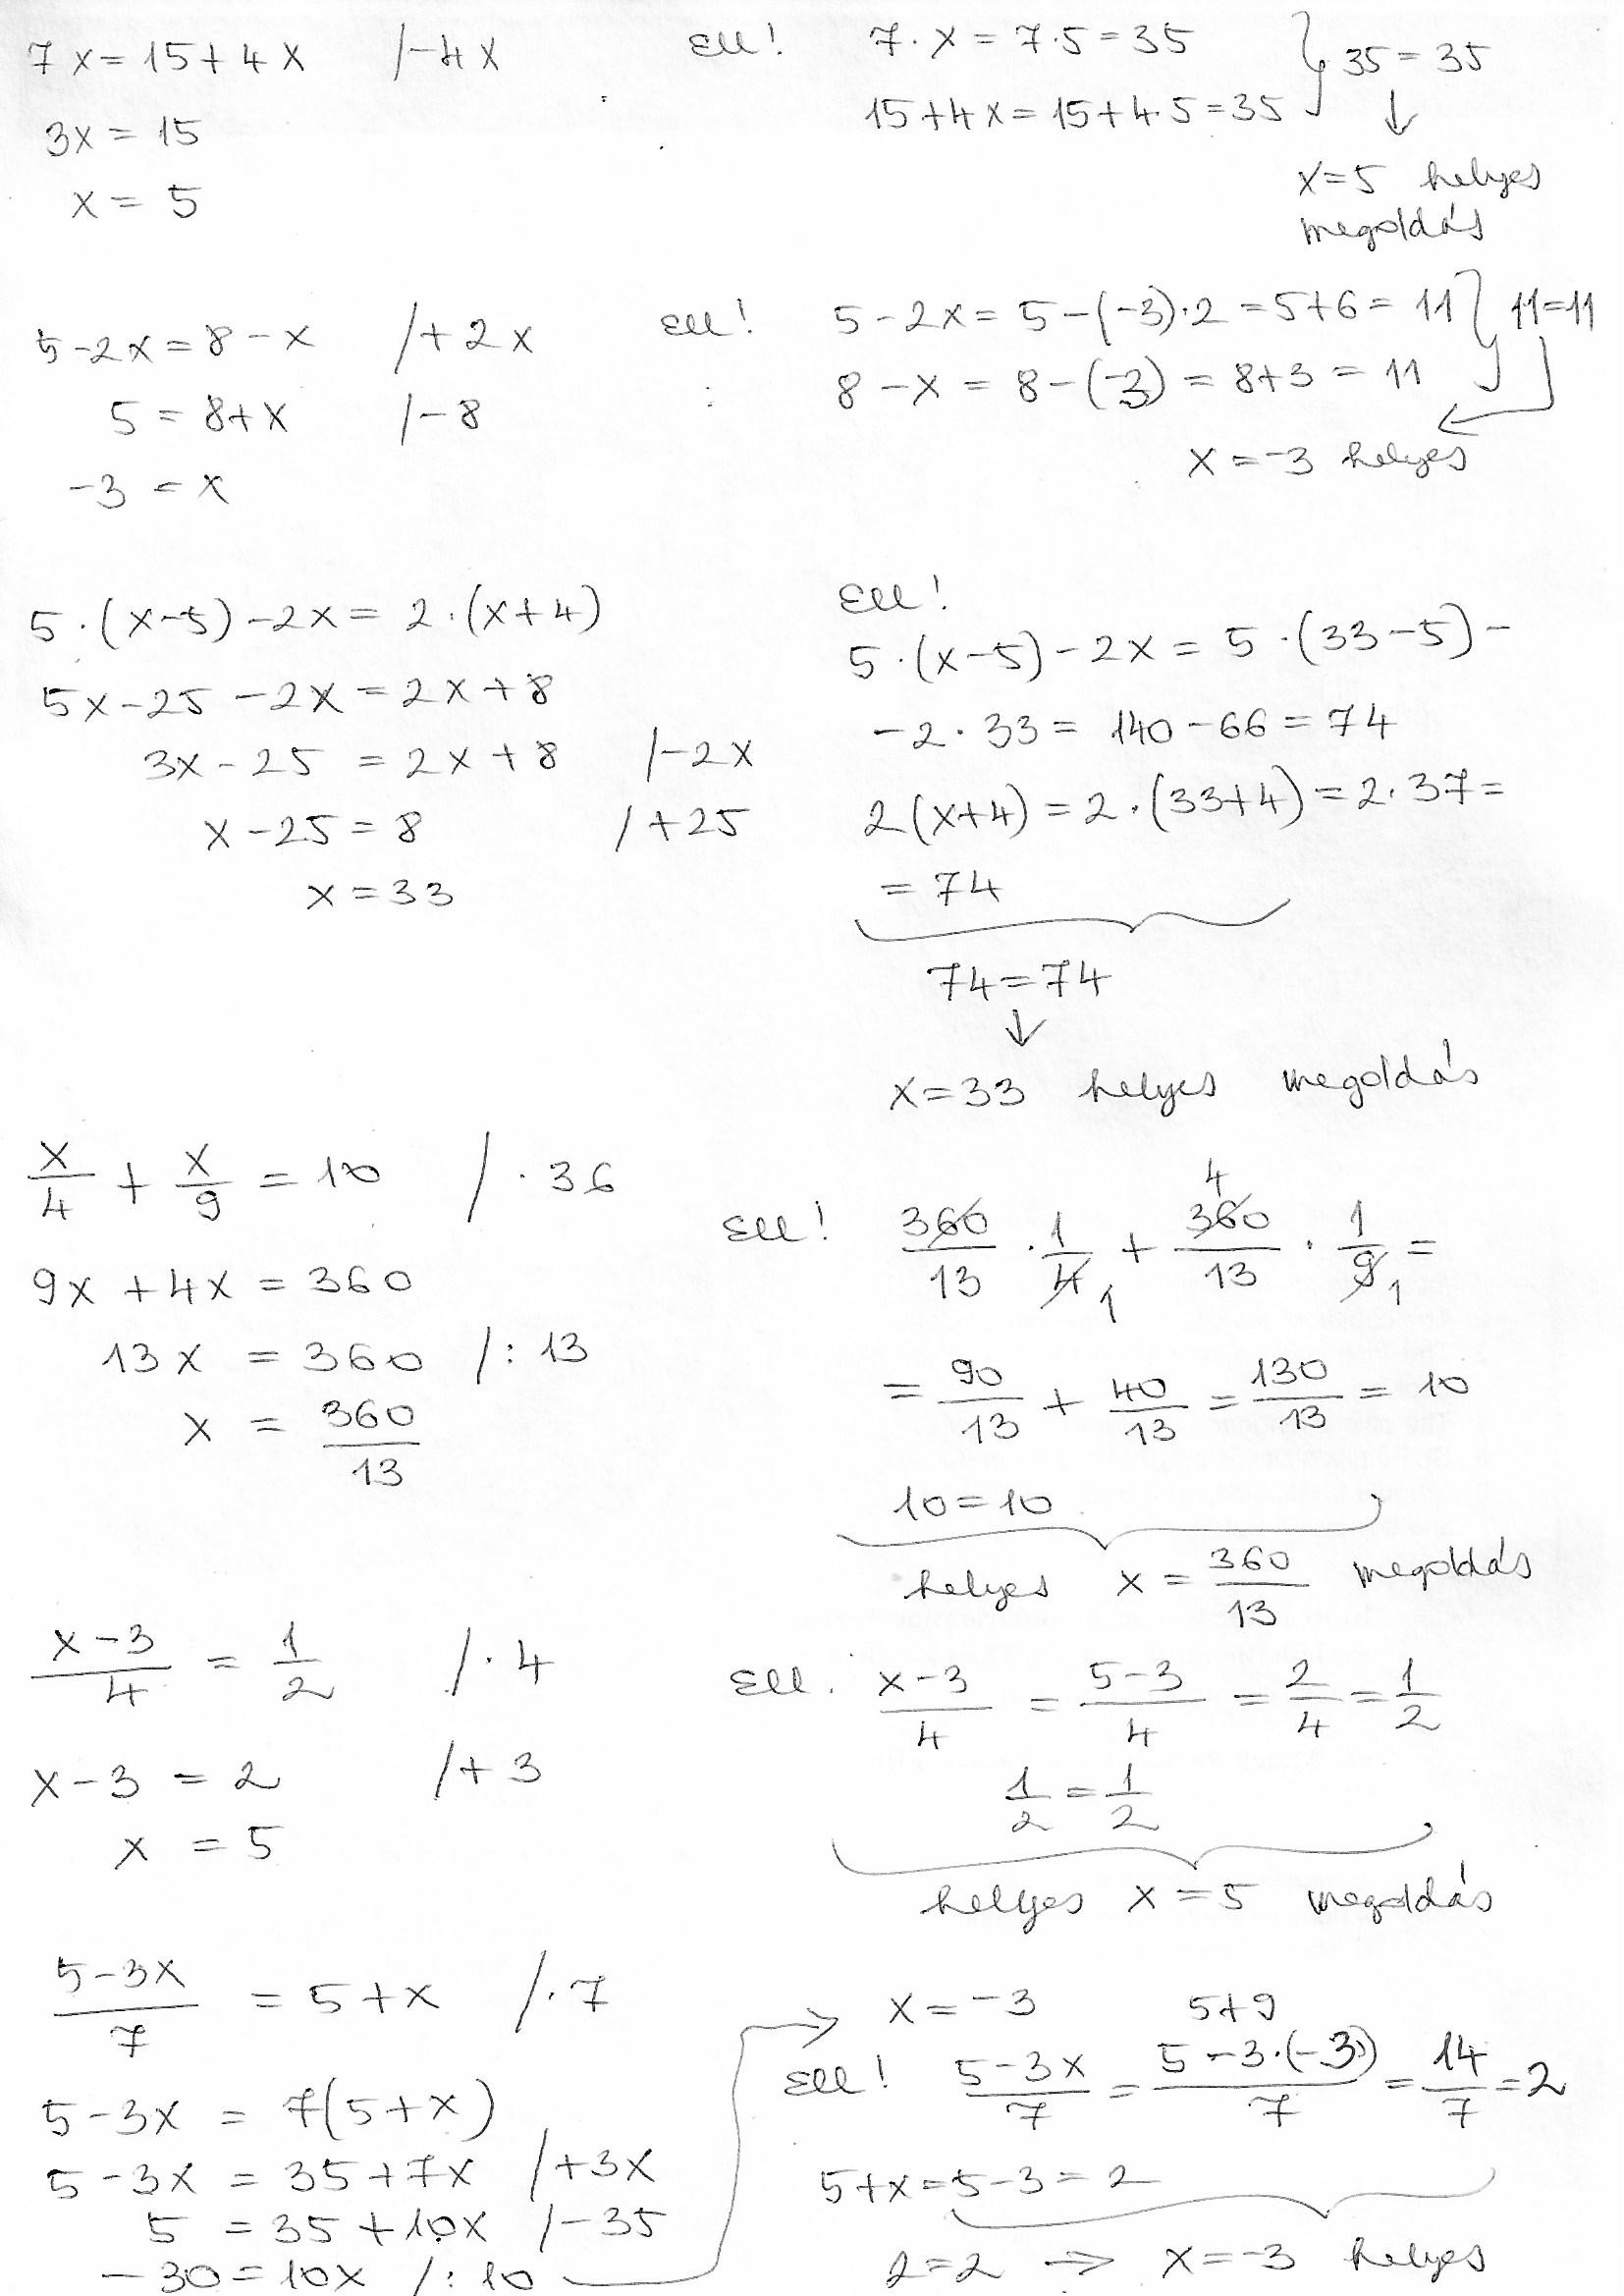 7x = 15 + 4x /-4x
3x = 15
x = 5
Ell! 7·x = 7·5 = 35
15+4x = 15+4·5 = 35 } 35 = 35
↓
x=5 helyes
megoldás
5-2x = 8-x /+2x
5 = 8+x /-8
-3 = x
Ell! 5-2x = 5-(-3)·2 = 5+6 = 11
8-x = 8-(-3) = 8+3 = 11 } 11=11
x = -3 helyes
5·(x-5)-2x = 2·(x+4)
5x-25-2x = 2x+8
3x-25 = 2x+8 /-2x
x-25 = 8 /+25
x = 33
Ell!
5·(x-5)-2x = 5·(33-5)-
-2·33 = 140-66 = 74
2(x+4) = 2·(33+4) = 2·37 =
= 74
74 = 74
↓
x=33 helyes megoldás
x/4 + x/9 = 10 /·36
9x + 4x = 360
13x = 360 /:13
x = 360/13
Ell! 360/13 · 1/4 1 + 4 360/13 · 1/9 1 =
= 90/13 + 40/13 = 130/13 = 10
10 = 10
helyes x = 360/13 megoldás
x-3/4 = 1/2 /·4
x-3 = 2 /+3
x = 5
Ell. x-3/4 = 5-3/4 = 2/4 = 1/2
1/2 = 1/2
helyes x = 5 megoldás
5-3x/7 = 5+x /·7
5-3x = 7(5+x)
5-3x = 35+7x /+3x
5 = 35+10x /-35
-30 = 10x /:10
→ x = -3
5+9
Ell! 5-3x/7 = 5-3·(-3)/7 = 14/7 = 2
5+x = 5-3 = 2
2=2 → x=-3 helyes